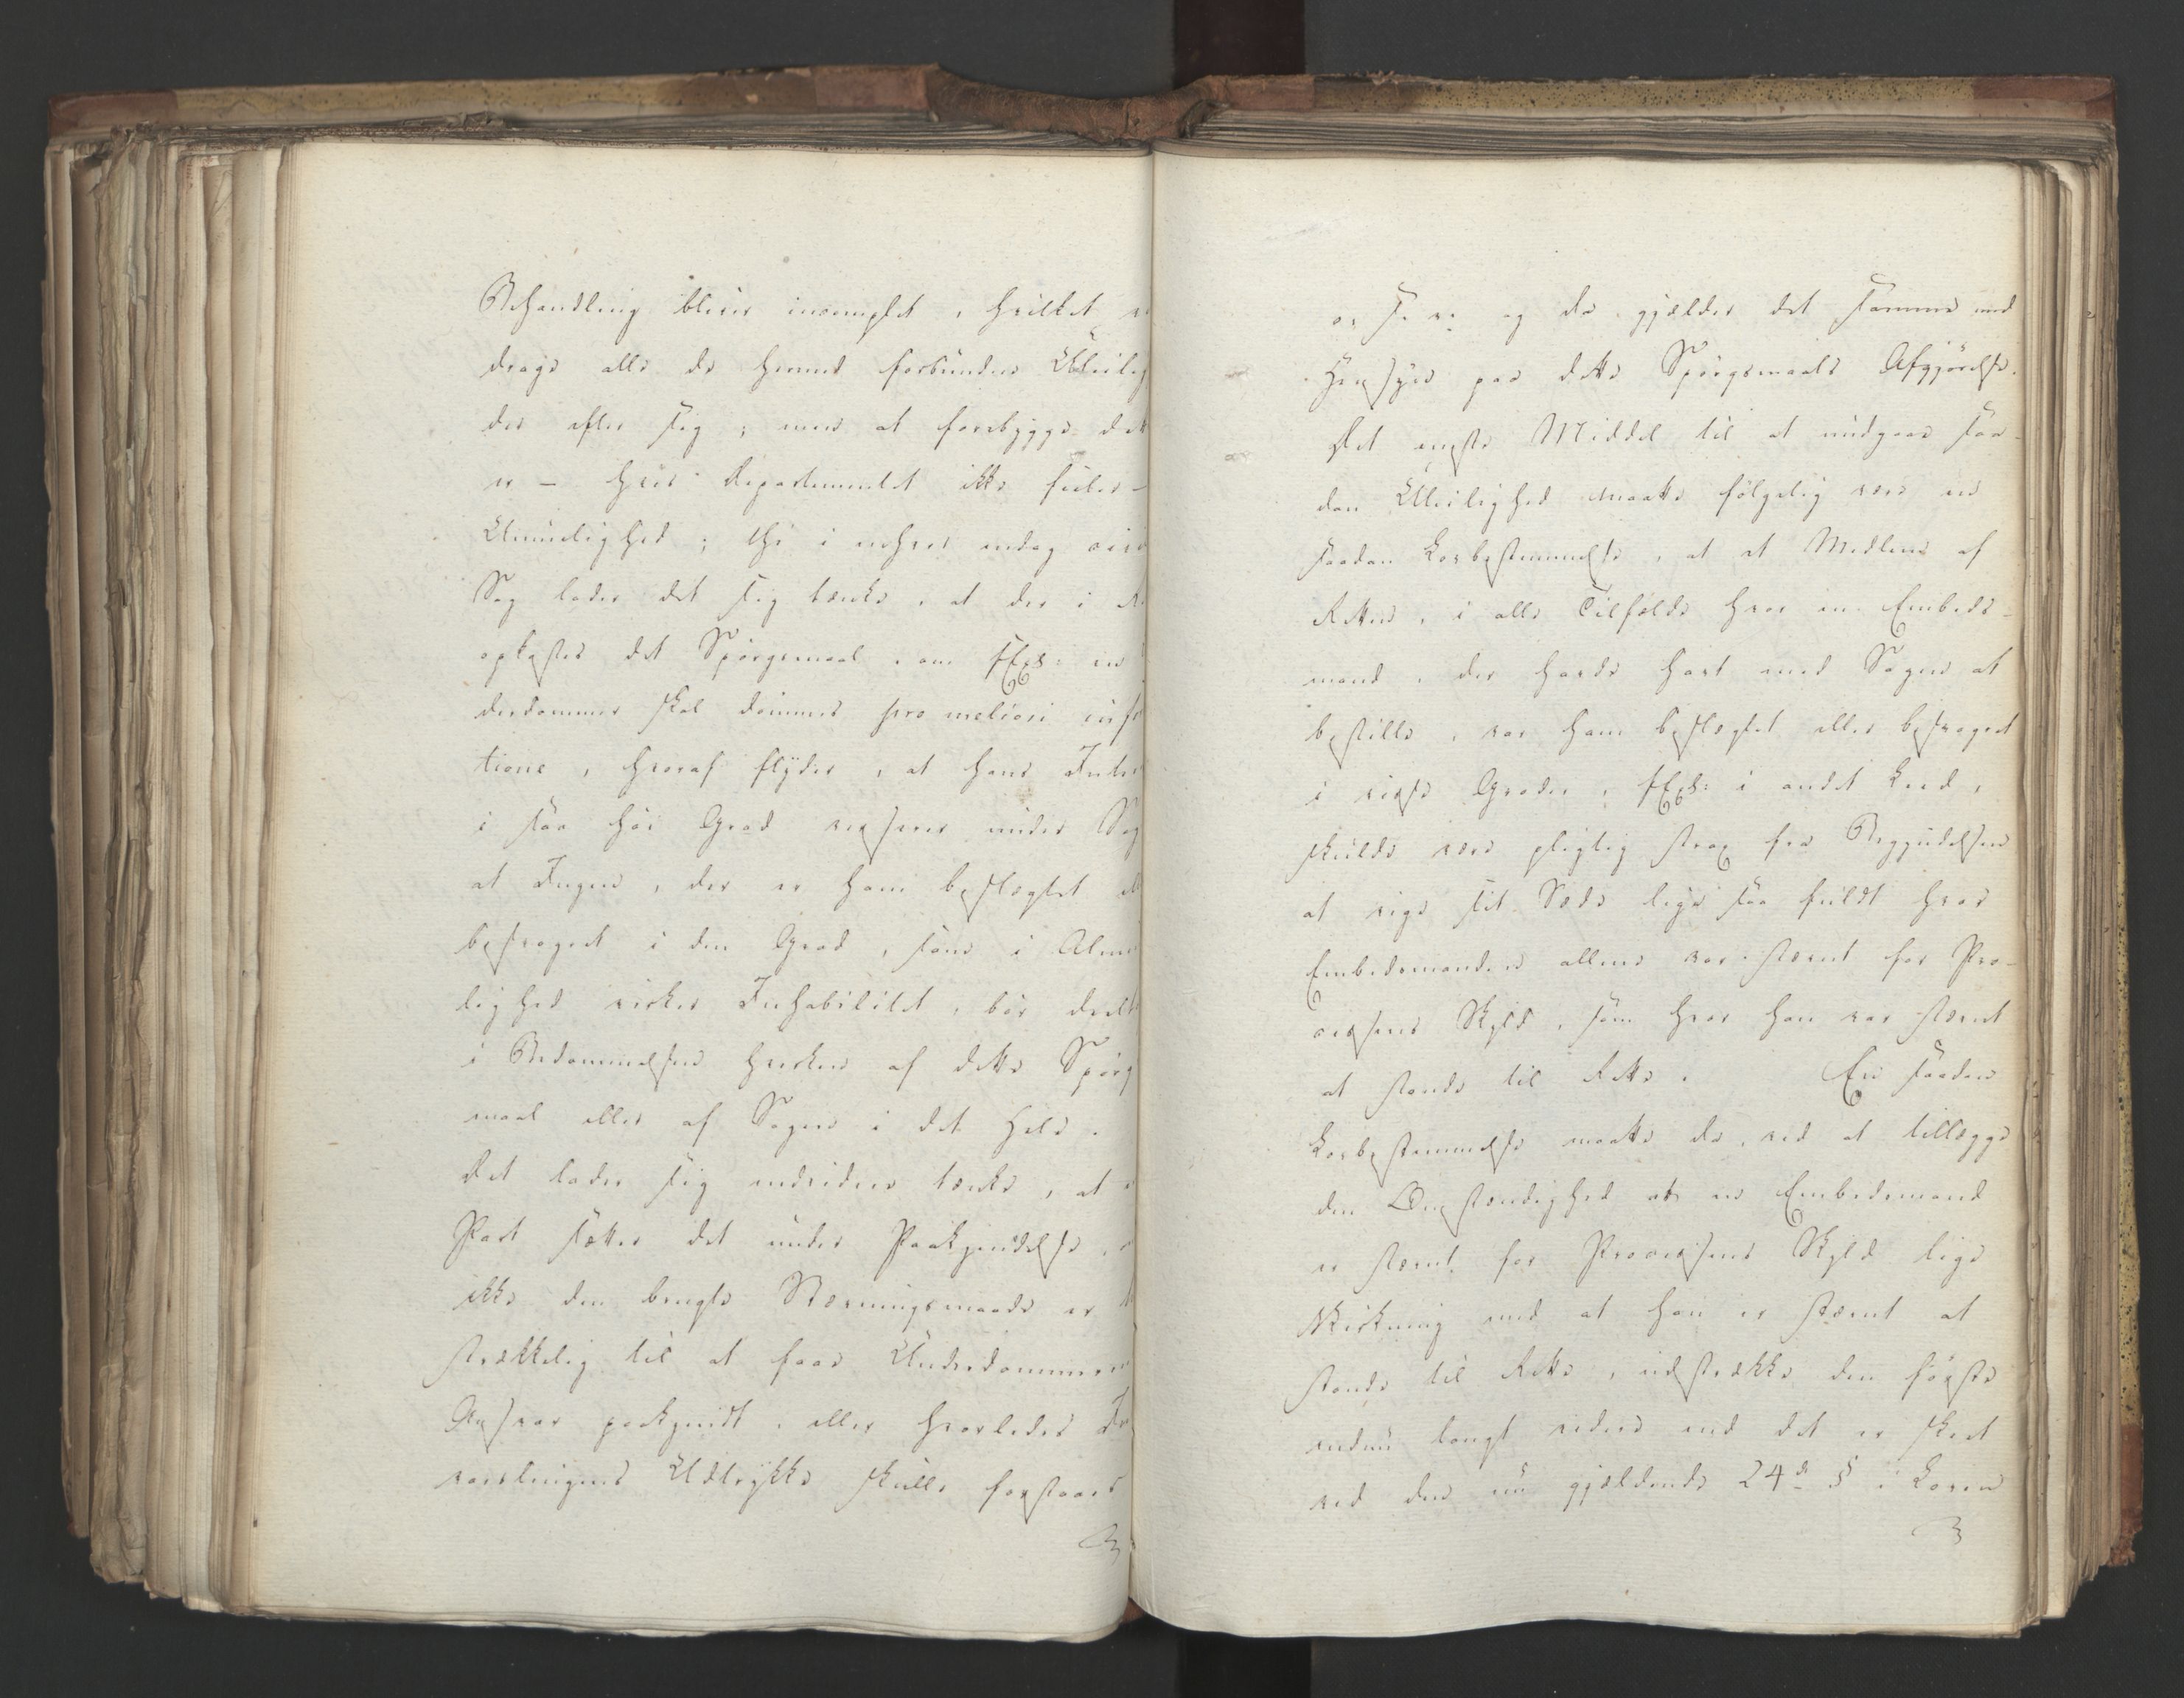 Behandling bliver incomplet, hvilket
drage alle de hermed forbundne Uleilig
der efter sig; men at forebygge det
er – hvis Departementet ikke feiler –
Umuelighed; thi i enhver endog
Sag lader det sig tænke, at der i
opkastes det Spørgsmaal, om f Ex: en
derdommer skal dømmes pro meliori info
tione, hvoraf flyder, at hans Inter
i saa høi Grad verserer under Sag
at Ingen, der er ham beslægtet
besvogret i den Grad, som i Almi
lighed virker Inhabilitet, bør deelt
i Bedømmelsen hverken af dette Spörgs
maal eller af Sagen i det Hele.
Det lader sig endvidere tænke, at
Part sætter det under Paakjendelse,
ikke den brugte Stævningsmaade er
strækkelig til at faae Underdommeren
Ansvar paakjendt, eller hvorledes
varslingens Udtrykke skulle forstaaes
o. s. v. og da gjælder det samme med
Hensyn paa dette Spørgsmaals Afgjörelse.
Det eneste Middel til at undgaae saa-
dan Uleilighed maatte følgelig være en
saadan Lovbestemmelse, at et Medlem af
Retten, i alle Tilfælde hvor en Embeds-
mand, der havde havt med Sagen at
bestille, var ham beslægtet eller besvogret
i visse Grader, f Ex: i andet Leed,
skulde være pligtig strax fra Begyndelsen
at vige sit Sæde lige saa fuldt hvor
Embedsmanden allene var stævnt for Pro-
cessens Skyld, som hvor han var stævnt
at stande til Rette. En saadan
Lovbestemmelse maatte da, ved at tillægge
den Omstændighed at en Embedsmand
er stævnt for Processens Skyld lige
Virkning med at han er stævnt at
stande til Rette, udstrække den første
endnu langt videre end det er skeet
ved den nu gjældende 24de § i Loven